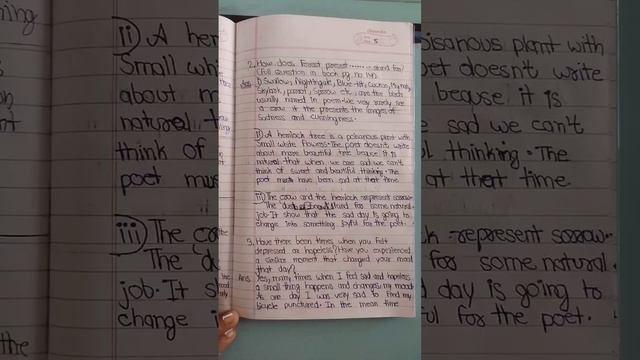 5
2. How does Forest present ........ stand for/
(Full question in book pg no 140)
Ans i) Swallow, Nightingale, Blue-tit, Cuckoo,
Skylark, parrot, Sparrow etc. are the birds
usually named in poem. We very rarely see
a crow the presents the images of
Sadness and cunningness.
ii) A hemlock tree is a poisanous plant with
Small white flowers. The poet doesn't write
about more beautiful tree beause it is
natural that when we are sad we can't
think of sweet and beautiful thinking. The
poet must have been sad at that time.
iii) The crow and the hemlock represent sorrow.
The 'dust of snow' stand for some natural
job. It show that the sad day is going to
change into something joyful for the poet.
3. Have there been times when you felt
depressed or hopeless? Have you experienced
a similar moment that changed your mood
that day?
Ans. Yes, many times when I feel sad and hopeless
a small thing happens and changes my mood.
As one day I was very sad to find my
bicycle punctured. In the mean time
ii) A heml
Small whi
about m
natural t
think of
poet mus
iii) The cro
The 'du
job. It s
change i
oisanous plant with
oet doesn't write
beause it is
sad we can't
l thinking. The
at that time.
ck represent sorrow.
for some natural
d day is going to
ful for the poet.